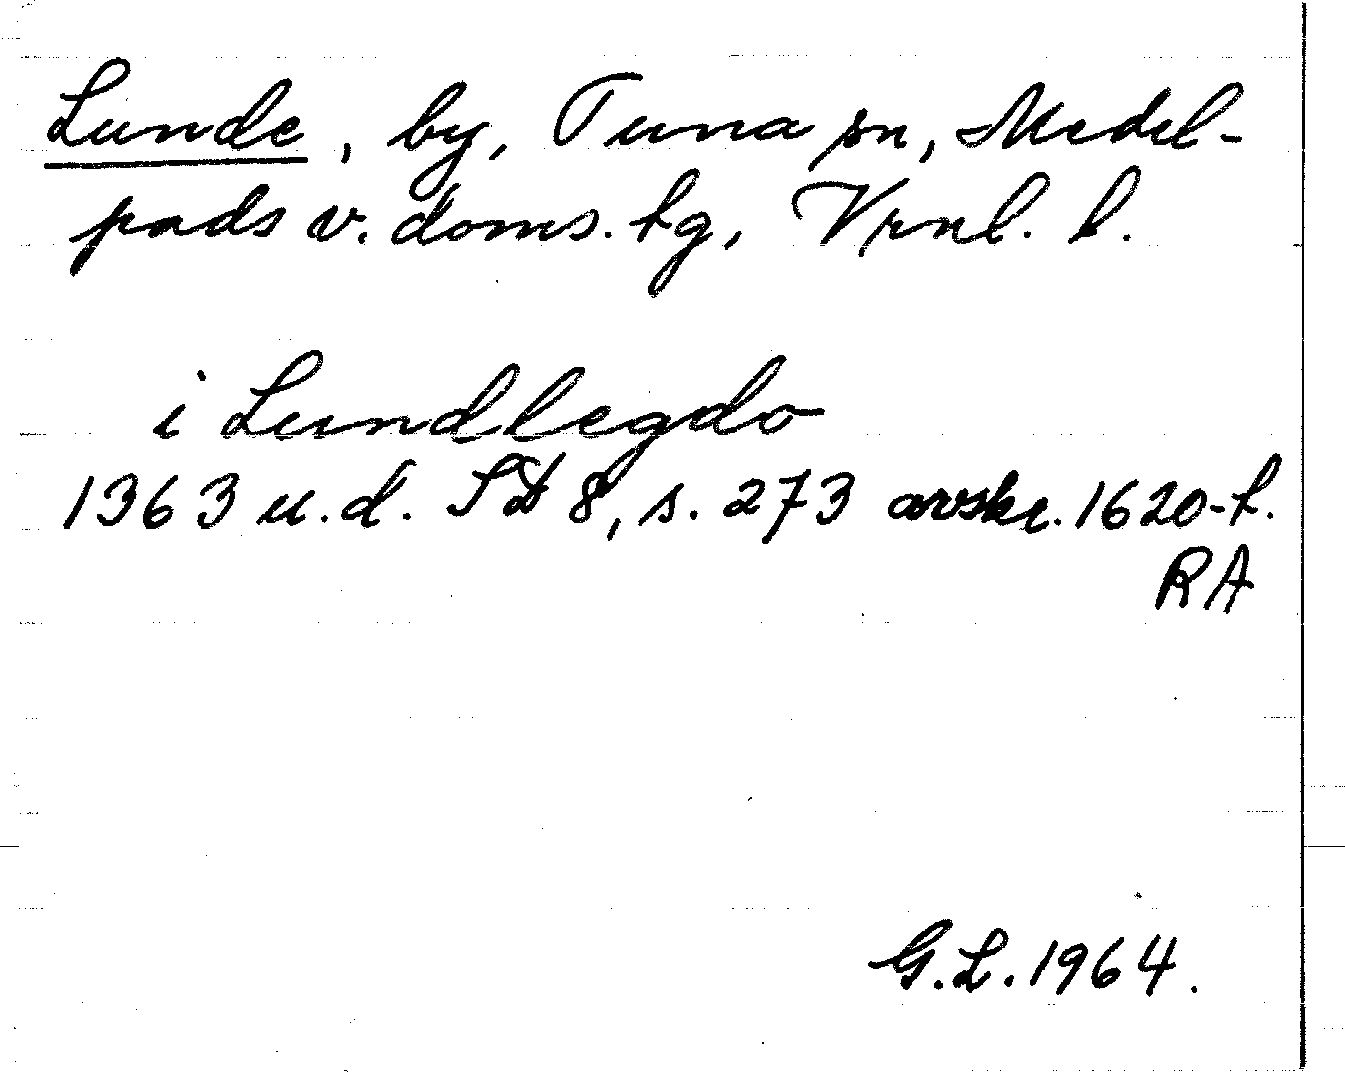 Lunde, by, Tuna sn, Medel-
pads v. doms. tg, Vrnl. l.
i Lundlegdo
1363 u.d. SD 8, s. 273 avskr. 1620-t.
RA
G.L. 1964.